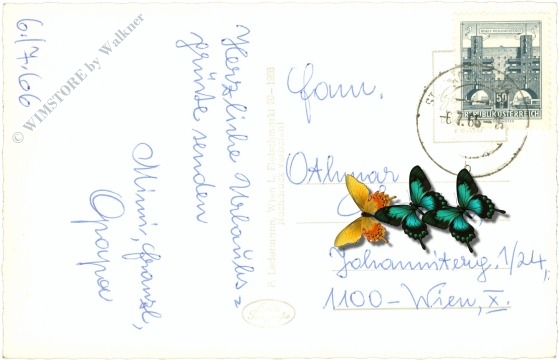 6./7.66
Herzliche Urlaubs=
grüße senden
Mimi, Franzl,
Opapa
Fam.
Othmar
Johanniterg. 1/24,
1100-Wien, X.
REPUBLIK ÖSTERREICH
50
-6.7.66
© WIMSTORE by Walkner
P. Ledermann, Wien I, Fleischmarkt 20 - 1966